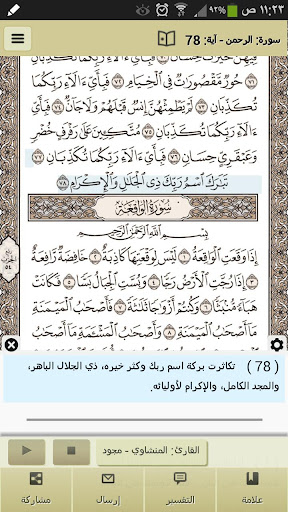 ١١:٢٣ ص ٩٢%
سورة: الرحمن - آية: 78 78
فِيهِنَّ خَيْرَاتٌ حِسَانٌ ۝٧٠ فَبِأَيِّ آلَاءِ رَبِّكُمَا
تُكَذِّبَانِ ۝٧١ حُورٌ مَقْصُورَاتٌ فِي الْخِيَامِ ۝٧٢ فَبِأَيِّ آلَاءِ رَبِّكُمَا
تُكَذِّبَانِ ۝٧٣ لَمْ يَطْمِثْهُنَّ إِنْسٌ قَبْلَهُمْ وَلَا جَانٌّ ۝٧٤ فَبِأَيِّ آلَاءِ
رَبِّكُمَا تُكَذِّبَانِ ۝٧٥ مُتَّكِئِينَ عَلَى رَفْرَفٍ خُضْرٍ
وَعَبْقَرِيٍّ حِسَانٍ ۝٧٦ فَبِأَيِّ آلَاءِ رَبِّكُمَا تُكَذِّبَانِ ۝٧٧
تَبَارَكَ اسْمُ رَبِّكَ ذِي الْجَلَالِ وَالْإِكْرَامِ ۝٧٨
سُورَةُ الْوَاقِعَةِ
بِسْمِ اللَّهِ الرَّحْمَنِ الرَّحِيمِ
إِذَا وَقَعَتِ الْوَاقِعَةُ ۝١ لَيْسَ لِوَقْعَتِهَا كَاذِبَةٌ ۝٢ خَافِضَةٌ رَافِعَةٌ
۝٣ إِذَا رُجَّتِ الْأَرْضُ رَجًّا ۝٤ وَبُسَّتِ الْجِبَالُ بَسًّا ۝٥ فَكَانَتْ
هَبَاءً مُنْبَثًّا ۝٦ وَكُنْتُمْ أَزْوَاجًا ثَلَاثَةً ۝٧ فَأَصْحَابُ الْمَيْمَنَةِ
مَا أَصْحَابُ الْمَيْمَنَةِ ۝٨ وَأَصْحَابُ الْمَشْأَمَةِ مَا أَصْحَابُ
(78) تكاثرت بركة اسم ربك وكثر خيره، ذي الجلال الباهر،
والمجد الكامل، والإكرام لأوليائه.
القارئ: المنشاوي - مجود
علامة
التفسير
إرسال
مشاركة